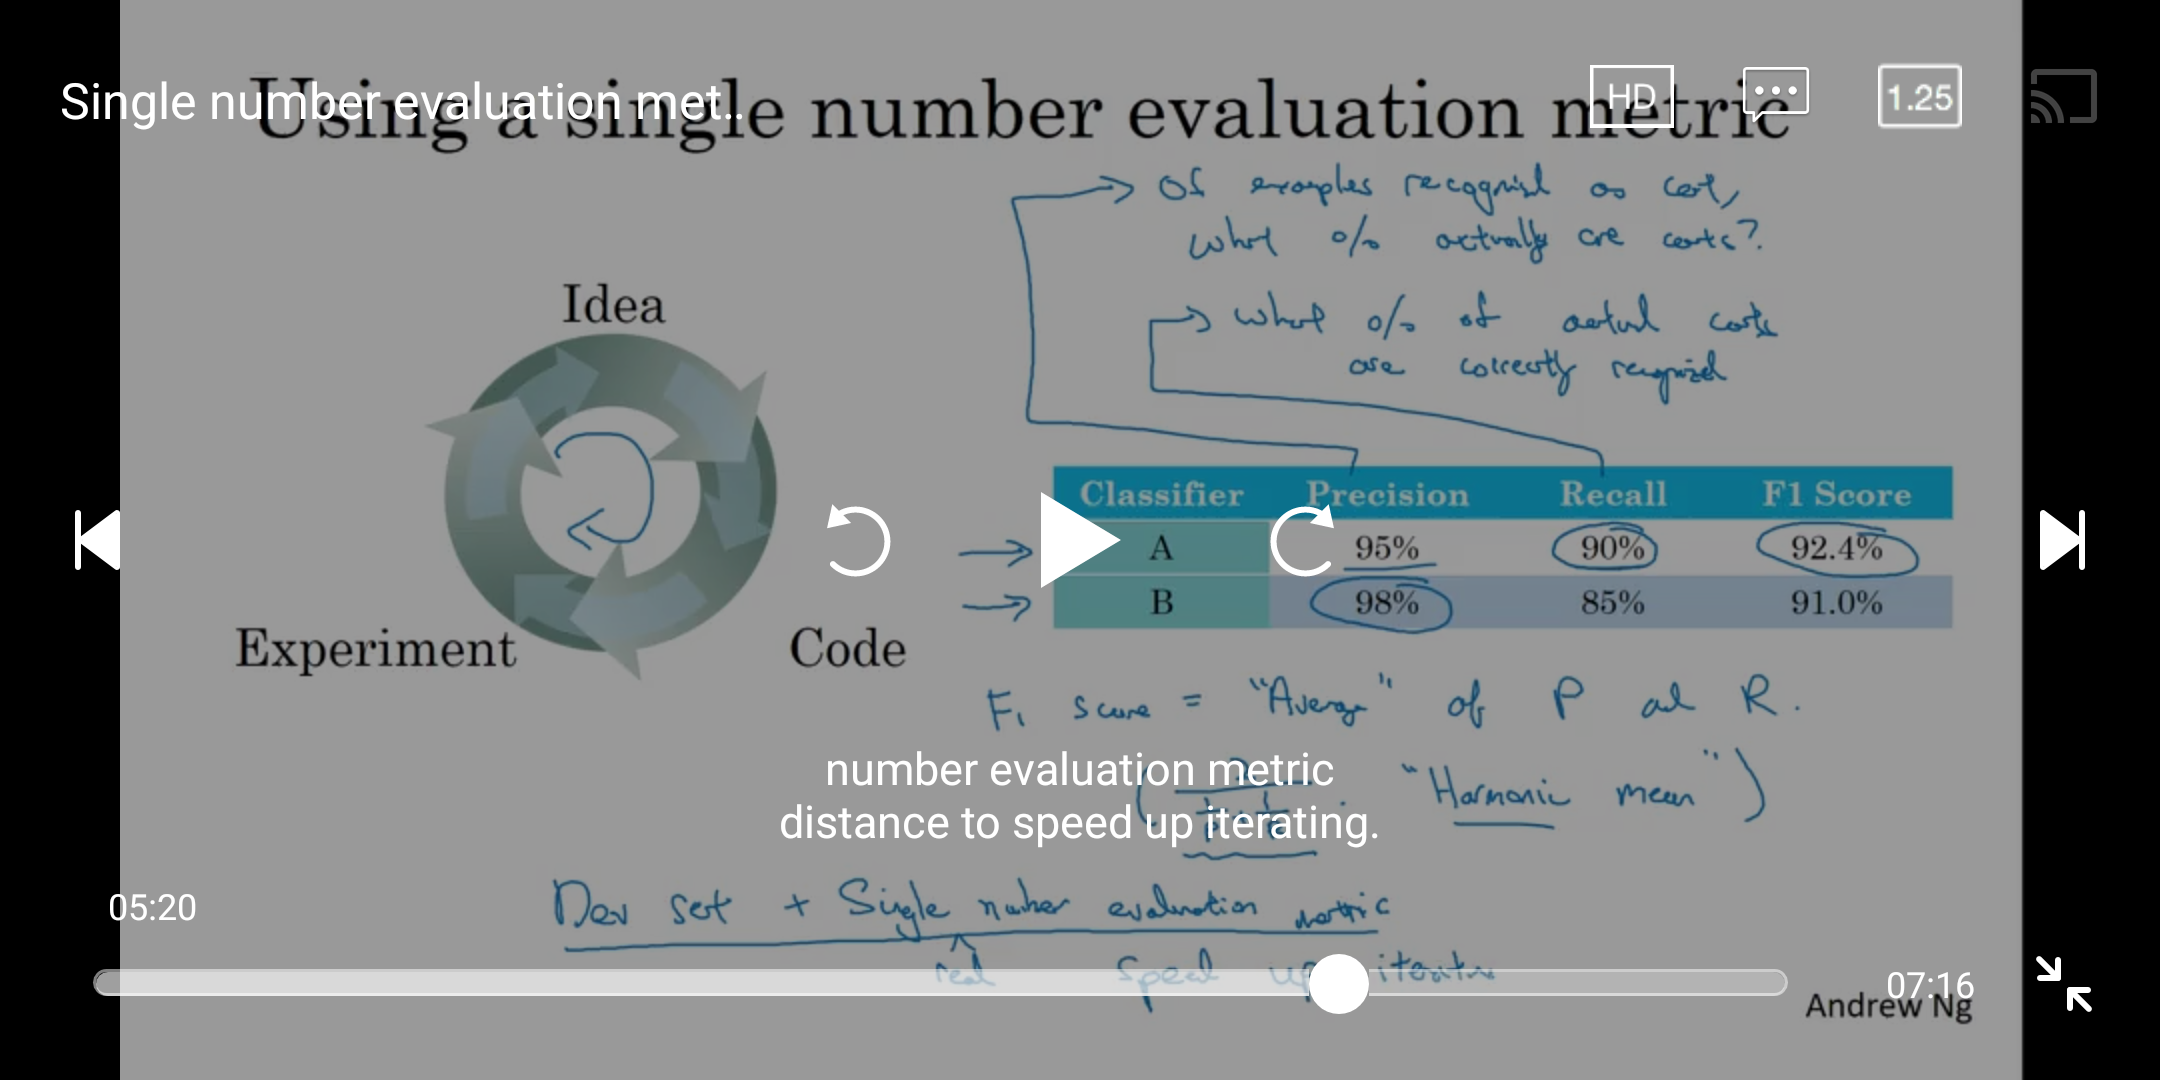 Single number evaluation met..
Using a single number evaluation metric
HD
1.25
Of examples recognized as cat,
what % actually are cats?
what % of actual cats
are correctly recognized
Idea
Code
Experiment
Classifier Precision Recall F1 Score
A 95% 90% 92.4%
B 98% 85% 91.0%
F1 score = "Average" of P and R.
"Harmonic mean")
number evaluation metric
distance to speed up iterating.
Dev set + Single number evaluation metric
real speed up
05:20
07:16
Andrew Ng